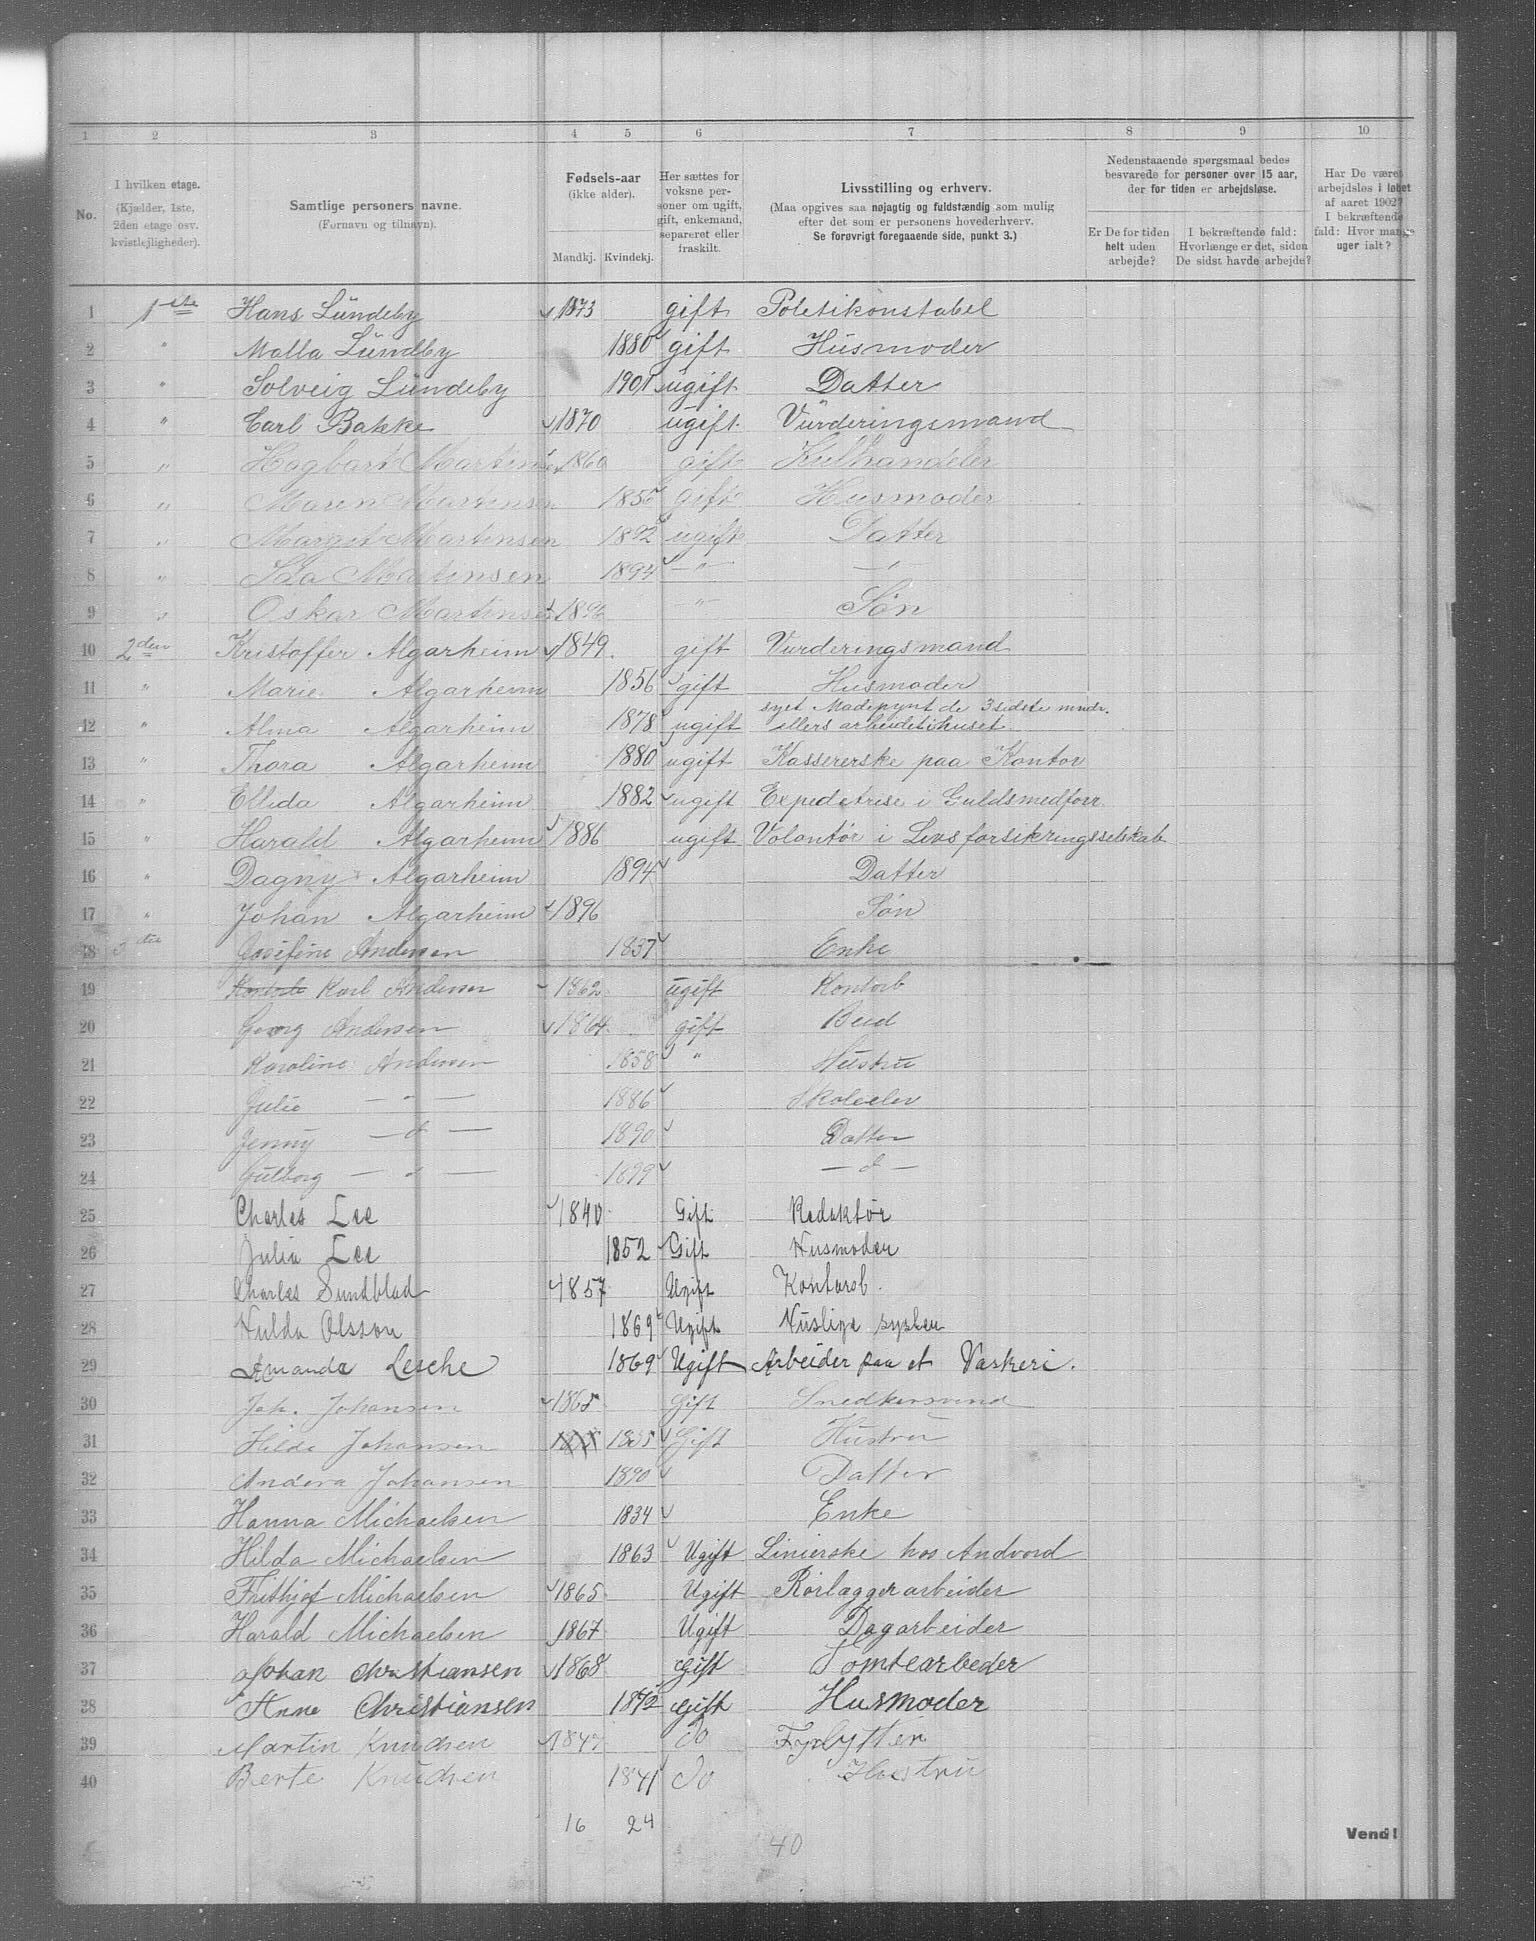 1 2 3 4 5 6 7 8 9 10
No.
I hvilken etage.
(Kjælder, 1ste,
2den etage osv.
kvistlejligheder).
Samtlige personers navne.
(Fornavn og tilnavn).
Fødsels-aar
(ikke alder).
Mandkj. Kvindekj.
Her sættes for
voksne per-
soner om ugift,
gift, enkemand,
separeret eller
fraskilt.
Livsstilling og erhverv.
(Maa opgives saa nøjagtig og fuldstændig som mulig
efter det som er personens hovederhverv.
Se forøvrigt foregaaende side, punkt 3.)
Nedenstaaende spørgsmaal bedes
besvarede for personer over 15 aar,
der for tiden er arbejdsløse.
Er De for tiden
helt uden
arbejde?
I bekræftende fald:
Hvorlænge er det, siden
De sidst havde arbejde?
Har De været
arbejdsløs i løbet
af aaret 1902?
I bekræftende
fald: Hvor mange
uger ialt?
1 1ste Hans Lundeby 1873 gift Politikonstabel
2 " Malla Lundby 1880 gift Husmoder
3 " Solveig Lundeby 1901 ugift Datter
4 " Carl Bakke 1870 ugift Vurderingsmand
5 " Hagbart Martinsen 1860 gift Kulhandeler
6 " Maren Martinsen 1856 gift Husmoder
7 " Margit Martinsen 1892 ugift Datter
8 " Ida Martinsen 1894 — " — — " —
9 " Oskar Martinsen 1896 — " — Søn
10 2den Kristoffer Algarheim 1849 gift Vurderingsmand
11 " Marie Algarheim 1856 gift Husmoder
12 " Alma Algarheim 1878 ugift syet Madepynt de 3 sidste mndr.
ellers arbeidet i huset
13 " Thora Algarheim 1880 ugift Kassererske paa Kontor
14 " Ellida Algarheim 1882 ugift Expeditrise i Guldsmedforr.
15 " Harald Algarheim 1886 ugift Volontør i Livsforsikringsselskab
16 " Dagny Algarheim 1894 Datter
17 " Johan Algarheim 1896 Søn
18 3die Josefine Andersen 1837 Enke
19 Karl Andersen 1862 ugift Kontorb
20 Georg Andersen 1864 gift Bud
21 Karoline Andersen 1858 " Hustru
22 Julie — " — 1886 Skoleelev
23 Jenny — " — 1890 Datter
24 Gutborg — " — 1899 — " —
25 Charles Lee 1840 Gift Redaktør
26 Julia Lee 1852 Gift Husmoder
27 Charles Sundblad 1857 Ugift Kontorb.
28 Hulda Olsson 1869 Ugift Huslige sysler
29 Amanda Lesche 1869 Ugift Arbeider paa et Vaskeri.
30 Joh. Johansen 1865 Gift Snedkersvend
31 Hilda Johansen Gift Hustru
32 Andora Johansen 1890 Datter
33 Hanna Michaelsen 1834 Enke
34 Hilda Michaelsen 1863 Ugift Linierske hos Andvord
35 Frithjof Michaelsen 1865 Ugift Rørlæggerarbeider
36 Harald Michaelsen 1867 Ugift Dagarbeider
37 Johan Christiansen 1868 gift Tomtearbeder
38 Anne Christiansen 1872 gift Husmoder
39 Martin Knudsen 1847 Do
40 Berte Knudsen 1841 Do Hustru
16 24
40
Vend!